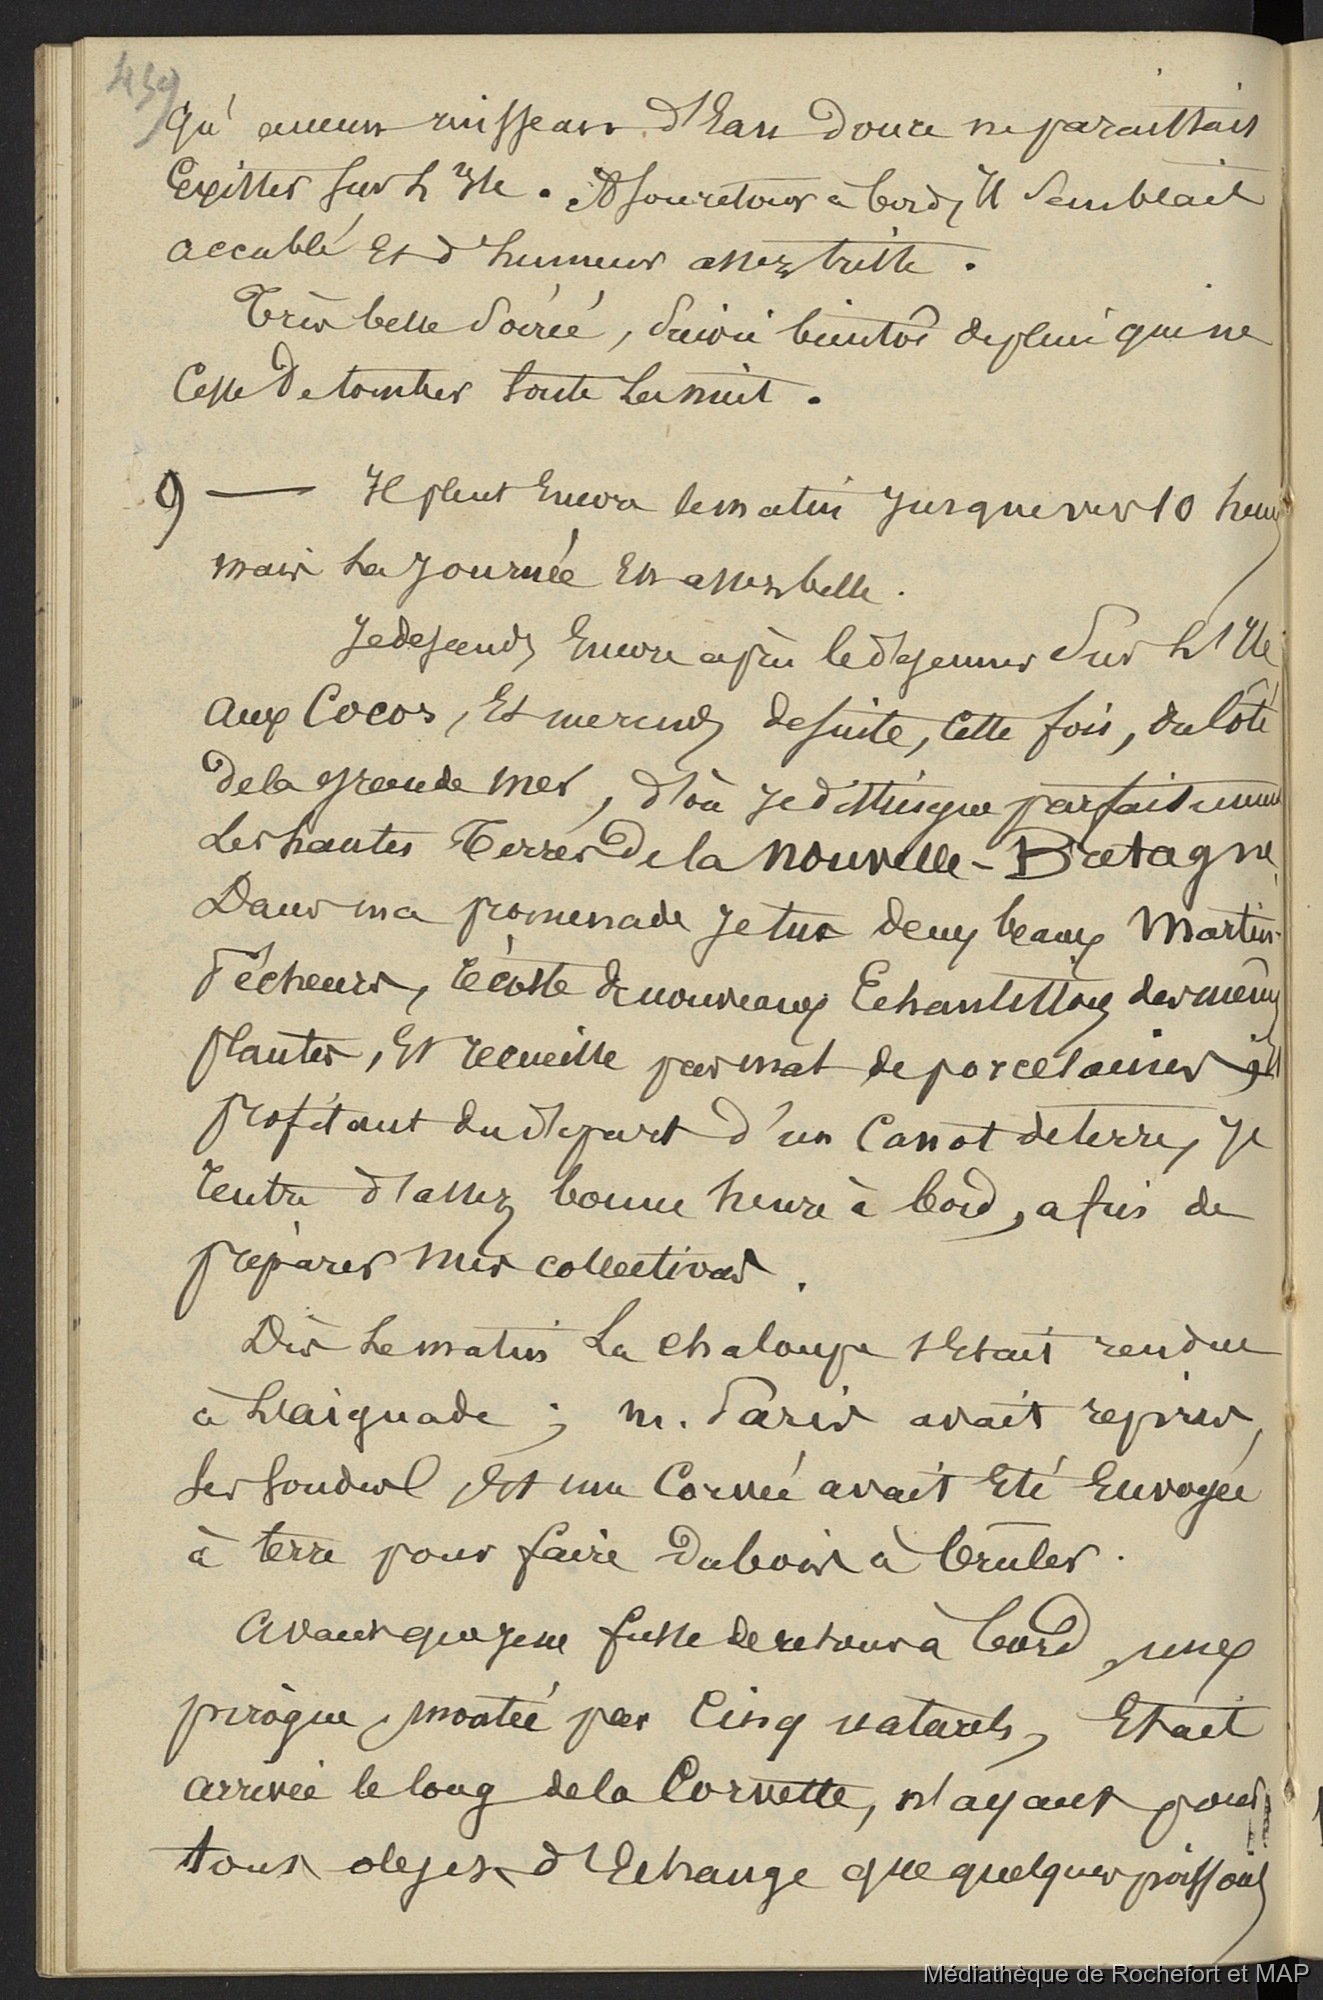 439
qu'aucun ruisseau d'Eau douce ne paraissait
Exister sur l'Ile. A son retour à bord, Il semblait
accablé Et d'humeur assez triste.
Très belle soirée, suivie bientôt de pluie qui ne
Cesse De tomber toute la nuit.
9 — Il pleut Encore le matin Jusque vers 10 heures
mais la Journée Est assez belle.
Je descends Encore après le déjeuner sur l'Ile
aux Cocos, Et me rends de suite, cette fois, du côté
De la grande mer, d'où Je distingue parfaitement
les hautes Terres De la Nouvelle-Bretagne.
Dans ma promenade Je tue deux beaux Martin-
Pêcheurs, récolte de nouveaux Echantillons des mêmes
plantes, Et recueille pas mal de porcelaines;
profitant du départ d'un Canot de terre, Je
rentre d'assez bonne heure à bord, afin de
préparer mes collections.
Dès le matin La chaloupe s'Etait rendue
à l'aiguade; M. Paris avait repris,
ses sondes Et une Corvée avait Eté Envoyée
à terre pour faire Du bois à brûler.
Avant que je ne fusse de retour à bord, une
pirogue, montée par Cinq naturels, Etait
arrivée le long de la Corvette, n'ayant pour
tous objets d'Echange que quelques poissons
Médiathèque de Rochefort et MAP